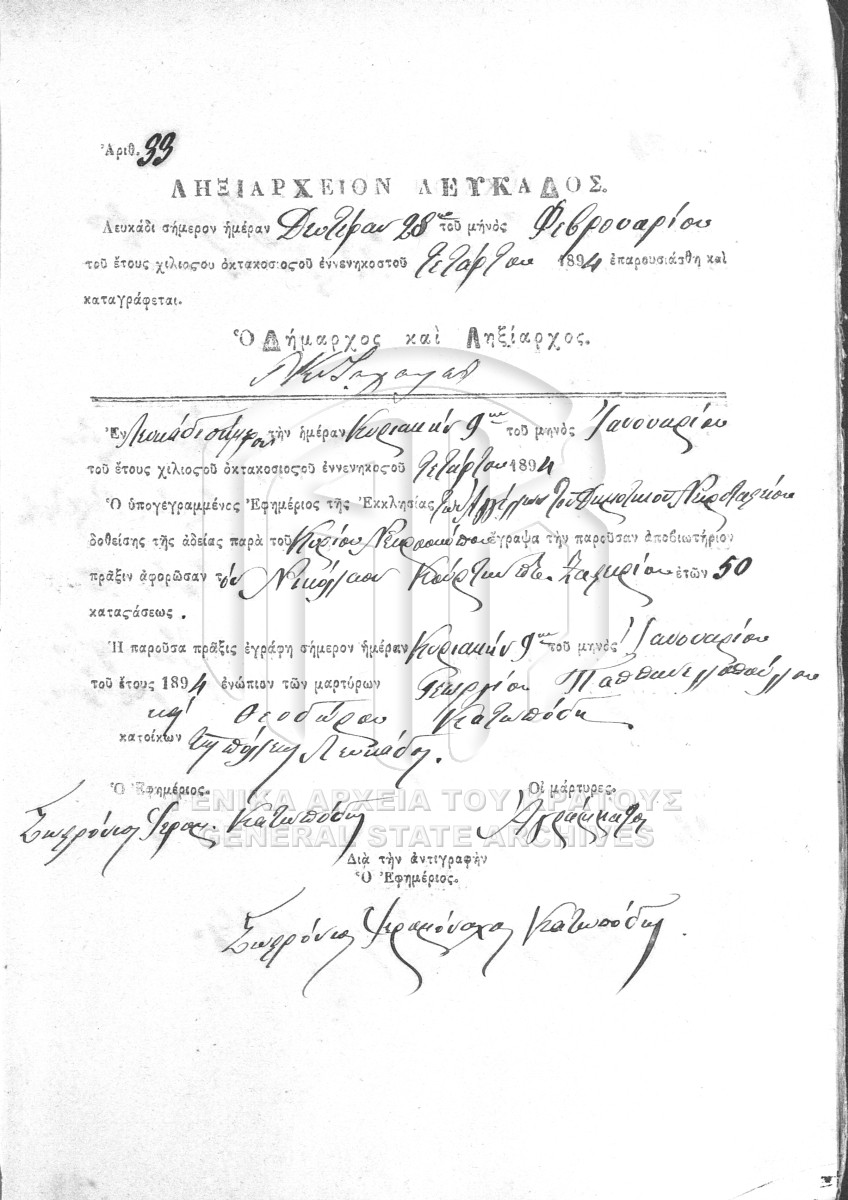 Ἀριθ. 33
ΛΗΞΙΑΡΧΕΙΟΝ ΛΕΥΚΑΔΟΣ.
Λευκάδι σήμερον ἡμέραν Δευτέραν 28ην τοῦ μηνὸς Φεβρουαρίου
τοῦ ἔτους χιλιοςοῦ ὀκτακοσιοςοῦ ἐννενηκοστοῦ τετάρτου 1894 ἐπαρουσιάσθη καὶ
καταγράφεται.
Ὁ Δήμαρχος καὶ Ληξίαρχος.
Ἐν Λευκάδι σήμερον τὴν ἡμέραν Κυριακήν 9ην τοῦ μηνὸς Ἰανουαρίου
τοῦ ἔτους χιλιοςοῦ ὀκτακοσιοςοῦ ἐννενηκοςοῦ τετάρτου 1894
Ὁ ὑπογεγραμμένος Ἐφημέριος τῆς Ἐκκλησίας τῶν Ἀγγέλων τοῦ Δημοτικοῦ Νεκροταφείου
δοθείσης τῆς ἀδείας παρὰ τοῦ Κυρίου ἔγραψα τὴν παροῦσαν ἀποβιωτήριον
πρᾶξιν ἀφορῶσαν τόν Νικόλαον Κούρτην ἐτῶν 50
καταςάσεως .
Ἡ παροῦσα πρᾶξις ἐγράφη σήμερον ἡμέραν Κυριακήν 9ην τοῦ μηνὸς Ἰανουαρίου
τοῦ ἔτους 1894 ἐνώπιον τῶν μαρτύρων Γεωργίου
καί Θεοδώρου Κατωπόδη
κατοίκων τῆς πόλεως Λευκάδος.
Ὁ Ἐφημέριος. Οἱ μάρτυρες.
Σωφρόνιος Ἱερομ. Κατωπόδης Ἀγράμματοι
ΓΕΝΙΚΑ ΑΡΧΕΙΑ ΤΟΥ ΚΡΑΤΟΥΣ
GENERAL STATE ARCHIVES
Διὰ τὴν ἀντιγραφήν
Ὁ Ἐφημέριος.
Σωφρόνιος Ἱερομόναχος Κατωπόδης.